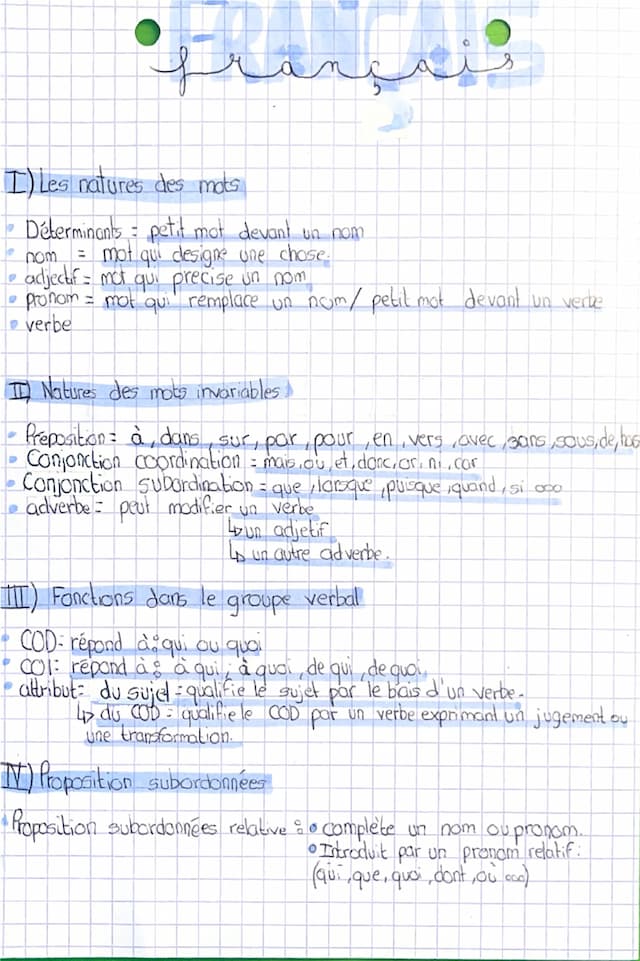 FRANÇAIS
français
I) Les natures des mots
• Déterminants = petit mot devant un nom
• nom = mot qui designe une chose.
• adjectif = mot qui précise un nom
• pronom = mot qui remplace un nom / petit mot devant un verbe
• verbe
II) Natures des mots invariables
• Préposition = à, dans, sur, par, pour, en, vers, avec, sans, sous, de, hors
• Conjonction coordination = mais, ou, et, donc, or, ni, car
• Conjonction subordination = que, lorsque, puisque, quand, si ...
• adverbe = peut modifier un verbe
↳ un adjetif
↳ un autre adverbe.
III) Fonctions dans le groupe verbal
• COD = répond à : qui ou quoi
• COI = répond à : à qui, à quoi, de qui, de quoi.
• attribut = du sujet = qualifie le sujet par le bais d'un verbe.
↳ du COD = qualifie le COD par un verbe exprimant un jugement ou
une transformation.
IV) Proposition subordonnées
• Proposition subordonnées relative : • complète un nom ou pronom.
• Introduit par un pronom relatif :
(qui, que, quoi, dont, où ...)